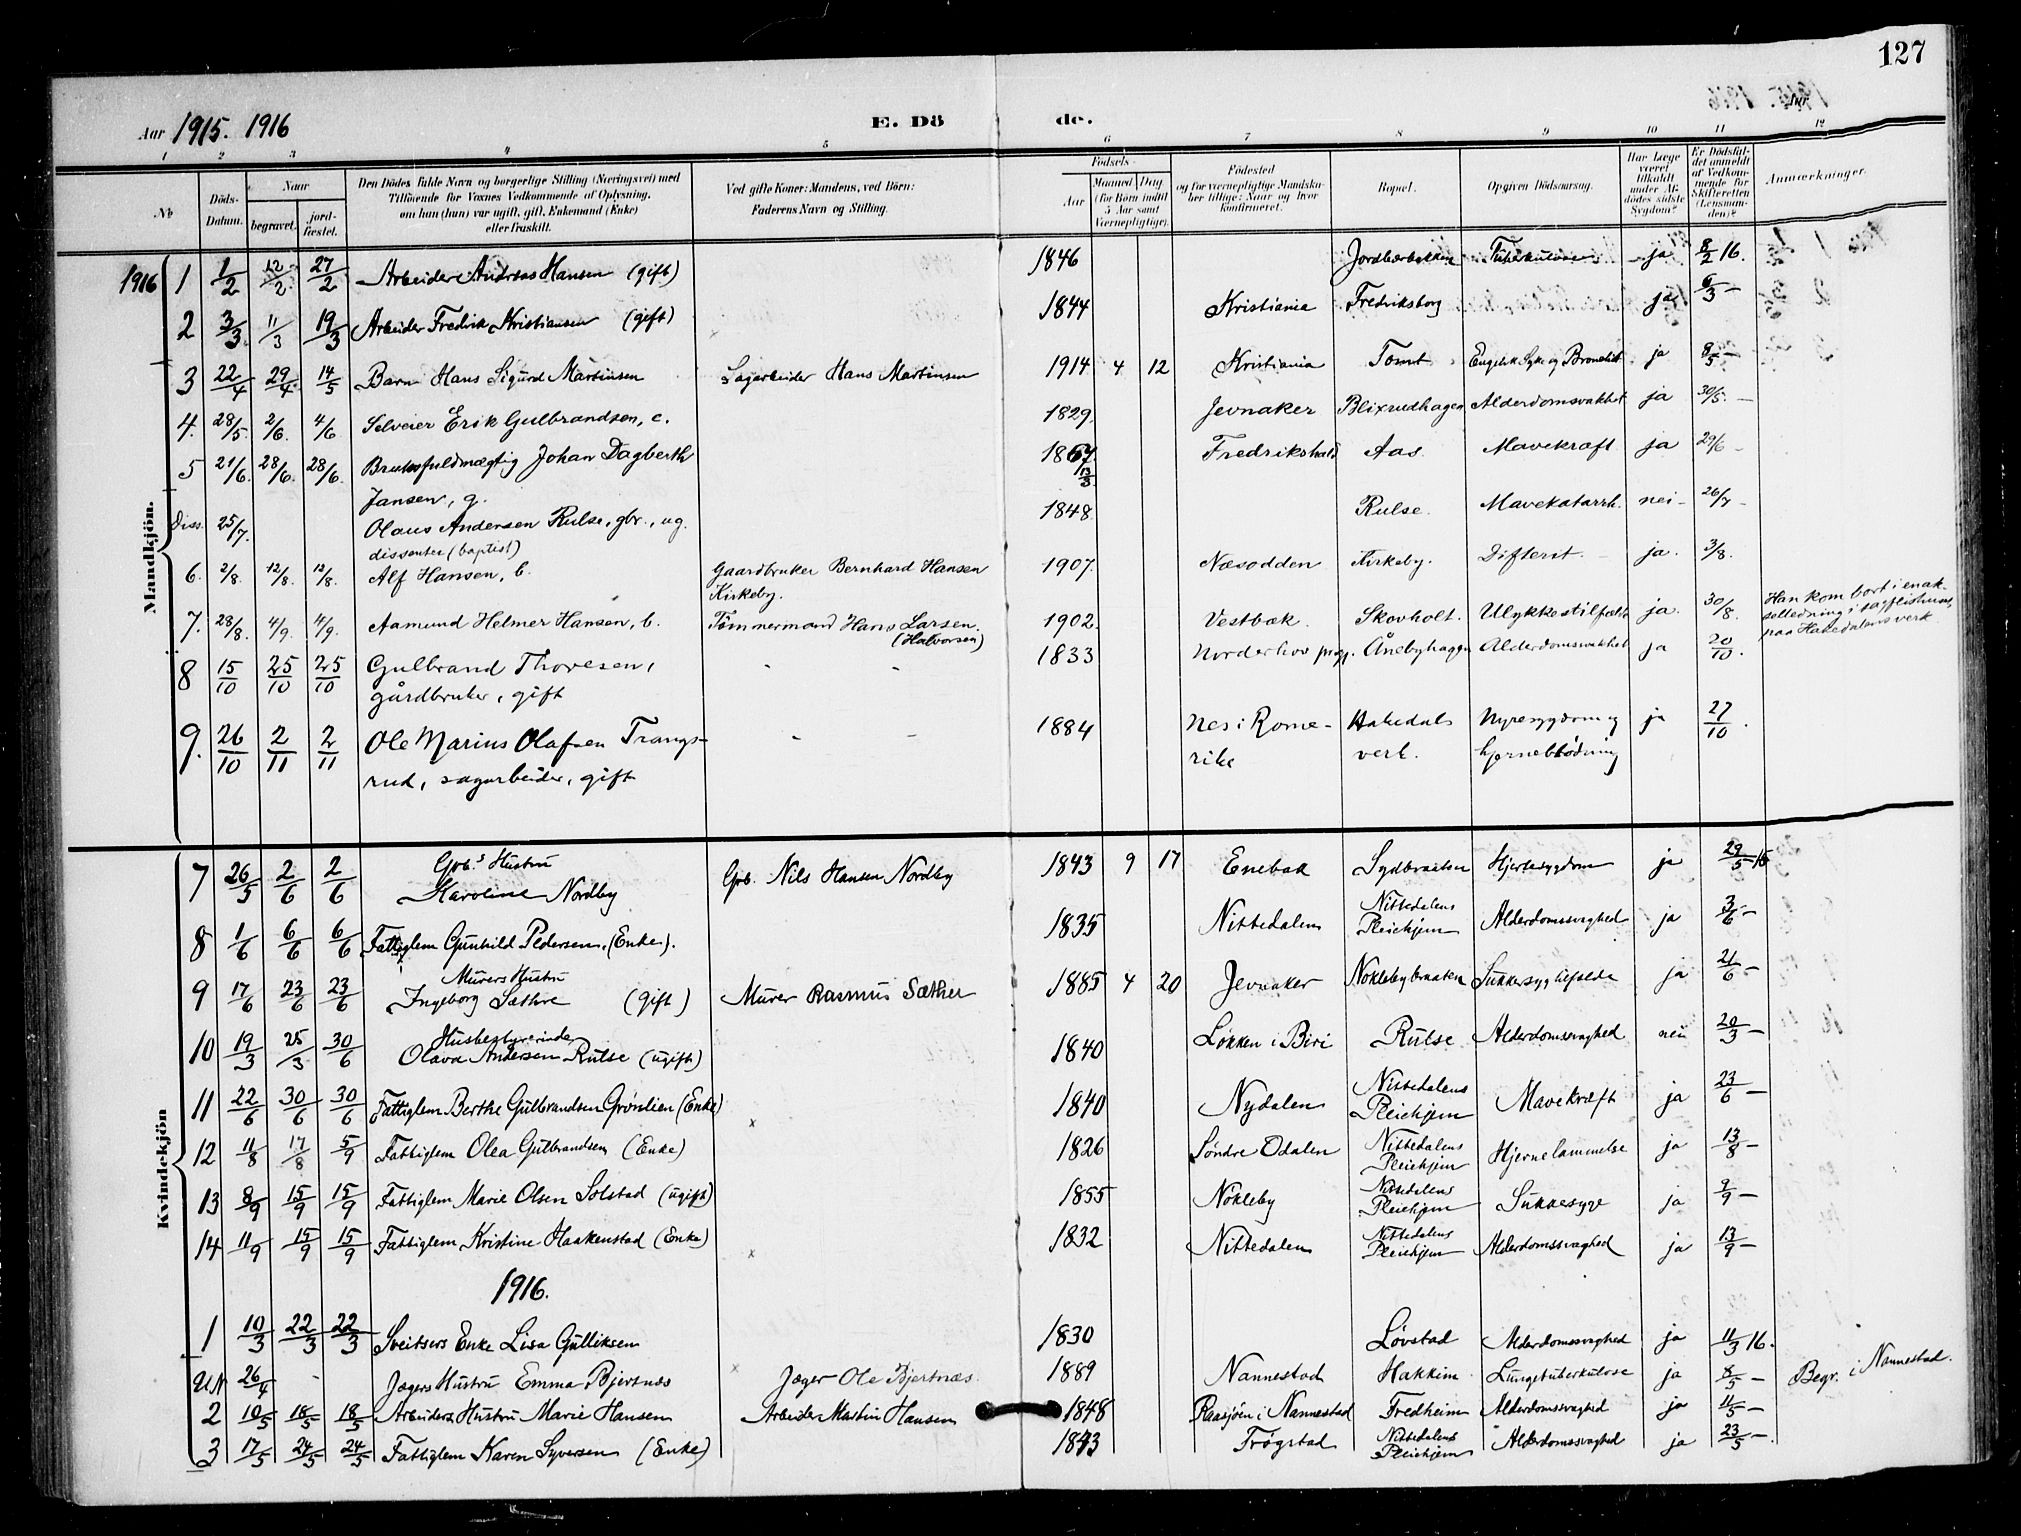 127
Aar 1915. 1916
E. Dö de.
1 2 3 4 5 6 7 8 9 10 11 12
No
Döds-Datum.
Naar
begravet.
jord-fæstet.
Den Dödes fulde Navn og borgerlige Stilling (Næringsvei) med
Tilföiende for Voxnes Vedkommende af Oplysning,
om han (hun) var ugift, gift, Enkemand (Enke)
eller fraskilt.
Ved gifte Koner: Mandens, ved Börn:
Faderens Navn og Stilling.
Födsels-
Aar
Maaned (for Börn indtil 5 Aar samt Værnepligtige).
Dag
Födested
og for værnepligtige Mandskaber tillige: Naar og hvor konfirmeret.
Bopæl.
Opgiven Dödsaarsag.
Har Læge været tilkaldt under Afdödes sidste Sygdom?
Er Dödsfaldet anmeldt af Vedkommende for Skifteretten (Lensmanden)?
Anmærkninger.
Mandkjön.
1916 1 1/2 12/2 27/2 Arbeider Andreas Hansen (gift) 1846 Jordbærbakken Tuberkulose ja 8/2 16.
2 3/3 11/3 19/3 Arbeider Fredrik Kristiansen (gift) 1844 Kristiania Fredriksborg ja 6/3 —
3 22/4 29/4 14/5 Barn Hans Sigurd Martinsen Sagarbeider Hans Martinsen 1914 4 12 Kristiania Tomt Engelsk Syke og Bronchit ja 8/5 —
4. 28/5. 2/6. 4/6 Selveier Erik Gulbrandsen, e. 1829. Jevnaker Blixrudhagen Alderdomsvakhet ja 30/5. —
5 21/6. 28/6. 28/6. Bruksfuldmægtig Johan Dagberth 1867. 13/3 Fredrikshald Aas Mavekræft ja 29/6 —
Jansen, g.
Diss. 25/7. Olaus Andersen Rulse, gbr., ug. 1848. Rulse. Mavekatarrh. nei — 26/7 —
dissenter (baptist)
6. 2/8. 12/8. 12/8. Alf Hansen, b. Gaardbruker Bernhard Hansen 1907. Næsodden Kirkeby. Difterit. — ja. 3/8.
Kirkeby.
7. 28/8. 4/9. 4/9. Aamund Helmer Hansen, b. Tømmermand Hans Larsen. 1902. Vestbæk. Skovholt. Ulykkestilfælde ja. 30/8. Han kom bort i en ak-
(Halvorsen) selledning i sagflishuset
paa Hakedalens verk
8 15/10 25/10 25/10 Gulbrand Thoresen, 1833 Norderhov prgj. Ånebyhagen Alderdomsvakhet ja 20/10.
gårdbruker, gift
9. 26/10 2/11 2/11 Ole Marius Olafsen Trangs- 1884 Nes i Rome- Hakedals Nyresygdom og ja 27/10.
rud, sagarbeider, gift rike verk. hjerneblødning
Kvindekjön
7 26/5 2/6 2/6 Grb.s Hustru
Karoline Nordby Grb. Nils Hansen Nordby 1843 9 17 Enebak Sydbraaten Hjertesygdom ja 29/5 15
8 1/6 6/6 6/6 Fattiglem Gunhild Pedersen. (Enke). 1835 Nittedalen Nittedalens Pleiehjem Alderdomssvaghed ja 3/6 —
9 17/6 23/6 23/6 Murers Hustru
Ingeborg Sæthre (gift) Murer Rasmus Sæther 1885 4 20 Jevnaker Noklebybraaten Sukkersyge ja 21/6 —
10 19/3 25/3 30/6 Husbestyrerinde
Olava Andersen Rulse (ugift) 1840 Løkken i Biri Rulse Alderdomssvaghed nei 20/3 —
11 22/6 30/6 30/6 Fattiglem Berthe Gulbrandsen Grønlien (Enke) 1840 Nydalen Nittedalens Pleiehjem Mavekræft ja 23/6 —
12 11/8 17/8 5/9 Fattiglem Olea Gulbrandsen (Enke) 1826 Søndre Odalen Nittedalens Pleiehjem Hjernelammelse ja 13/8 —
13 8/9 15/9 15/9 Fattiglem Marie Olsen Solstad (ugift) 1855 Nökleby Nittedalens Pleiehjem Sukkesyge ja 9/9 —
14 11/9 15/9 15/9 Fattiglem Kristine Haakenstad (Enke) 1832 Nittedalen Nittedalens Pleiehjem Alderdomssvaghed ja 13/9 —
1916.
1 10/3 22/3 22/3 Sveitsers Enke Lisa Gulliksen 1830 Løvstad Alderdomssvaghed ja 11/3 16.
UN 26/4 - Jægers Hustru Emma Bjertnæs Jæger Ole Bjertnæs. 1889 Nannestad Hakkim Lungetuberkulose ja 8/5 — Begr. i Nannestad.
2 10/5 18/5 18/5 Arbeiders Hustru Marie Hansen Arbeider Martin Hansen 1848 Raasjöen i Nannestad Fredheim Alderdomssvaghed ja 11/5 —
3 17/5 24/5 24/5 Fattiglem Karen Syversen (Enke) 1843 Trøgstad Nittedalens Pleiehjem Alderdomssvaghed ja 23/5 —.